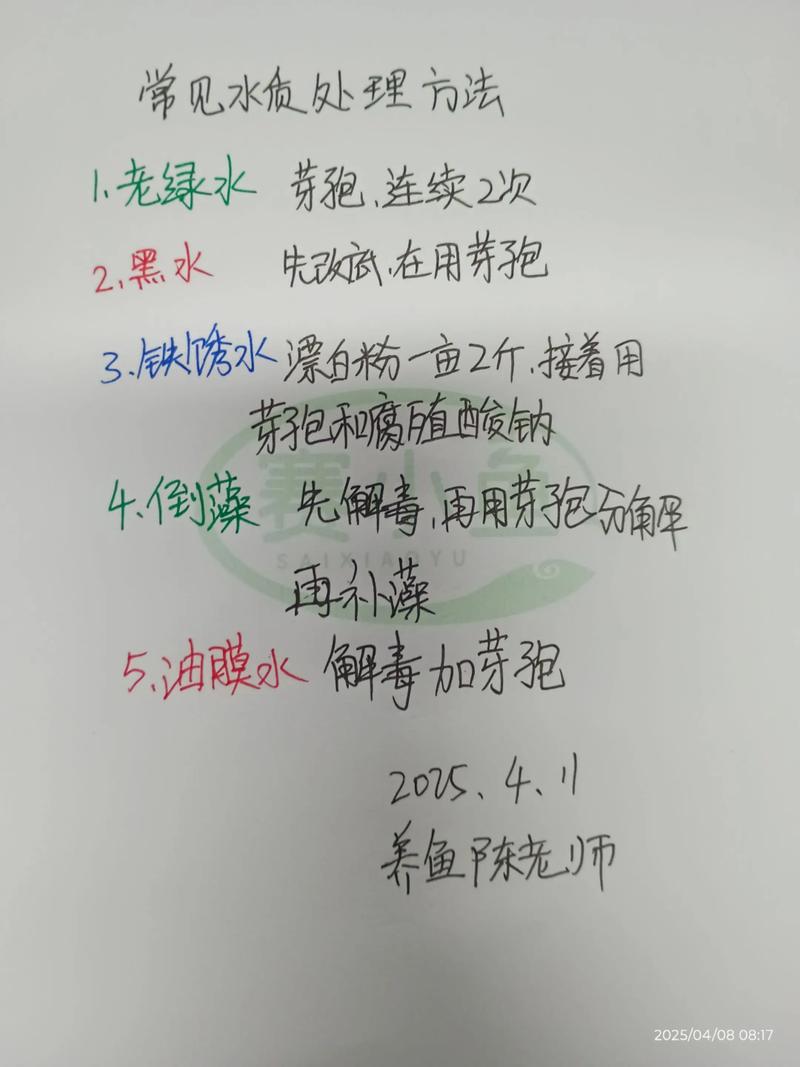 常见水质处理方法
1.老绿水 芽孢、连续2次
2.黑水 先改底、在用芽孢
3.铁锈水 漂白粉一亩2斤、接着用
芽孢和腐殖酸钠
赛小鱼
SAIXIAOYU
4.倒藻 先解毒、再用芽孢分解
再补藻
5.油膜水 解毒加芽孢
2025、4、11
养鱼陈老师
2025/04/08 08:17